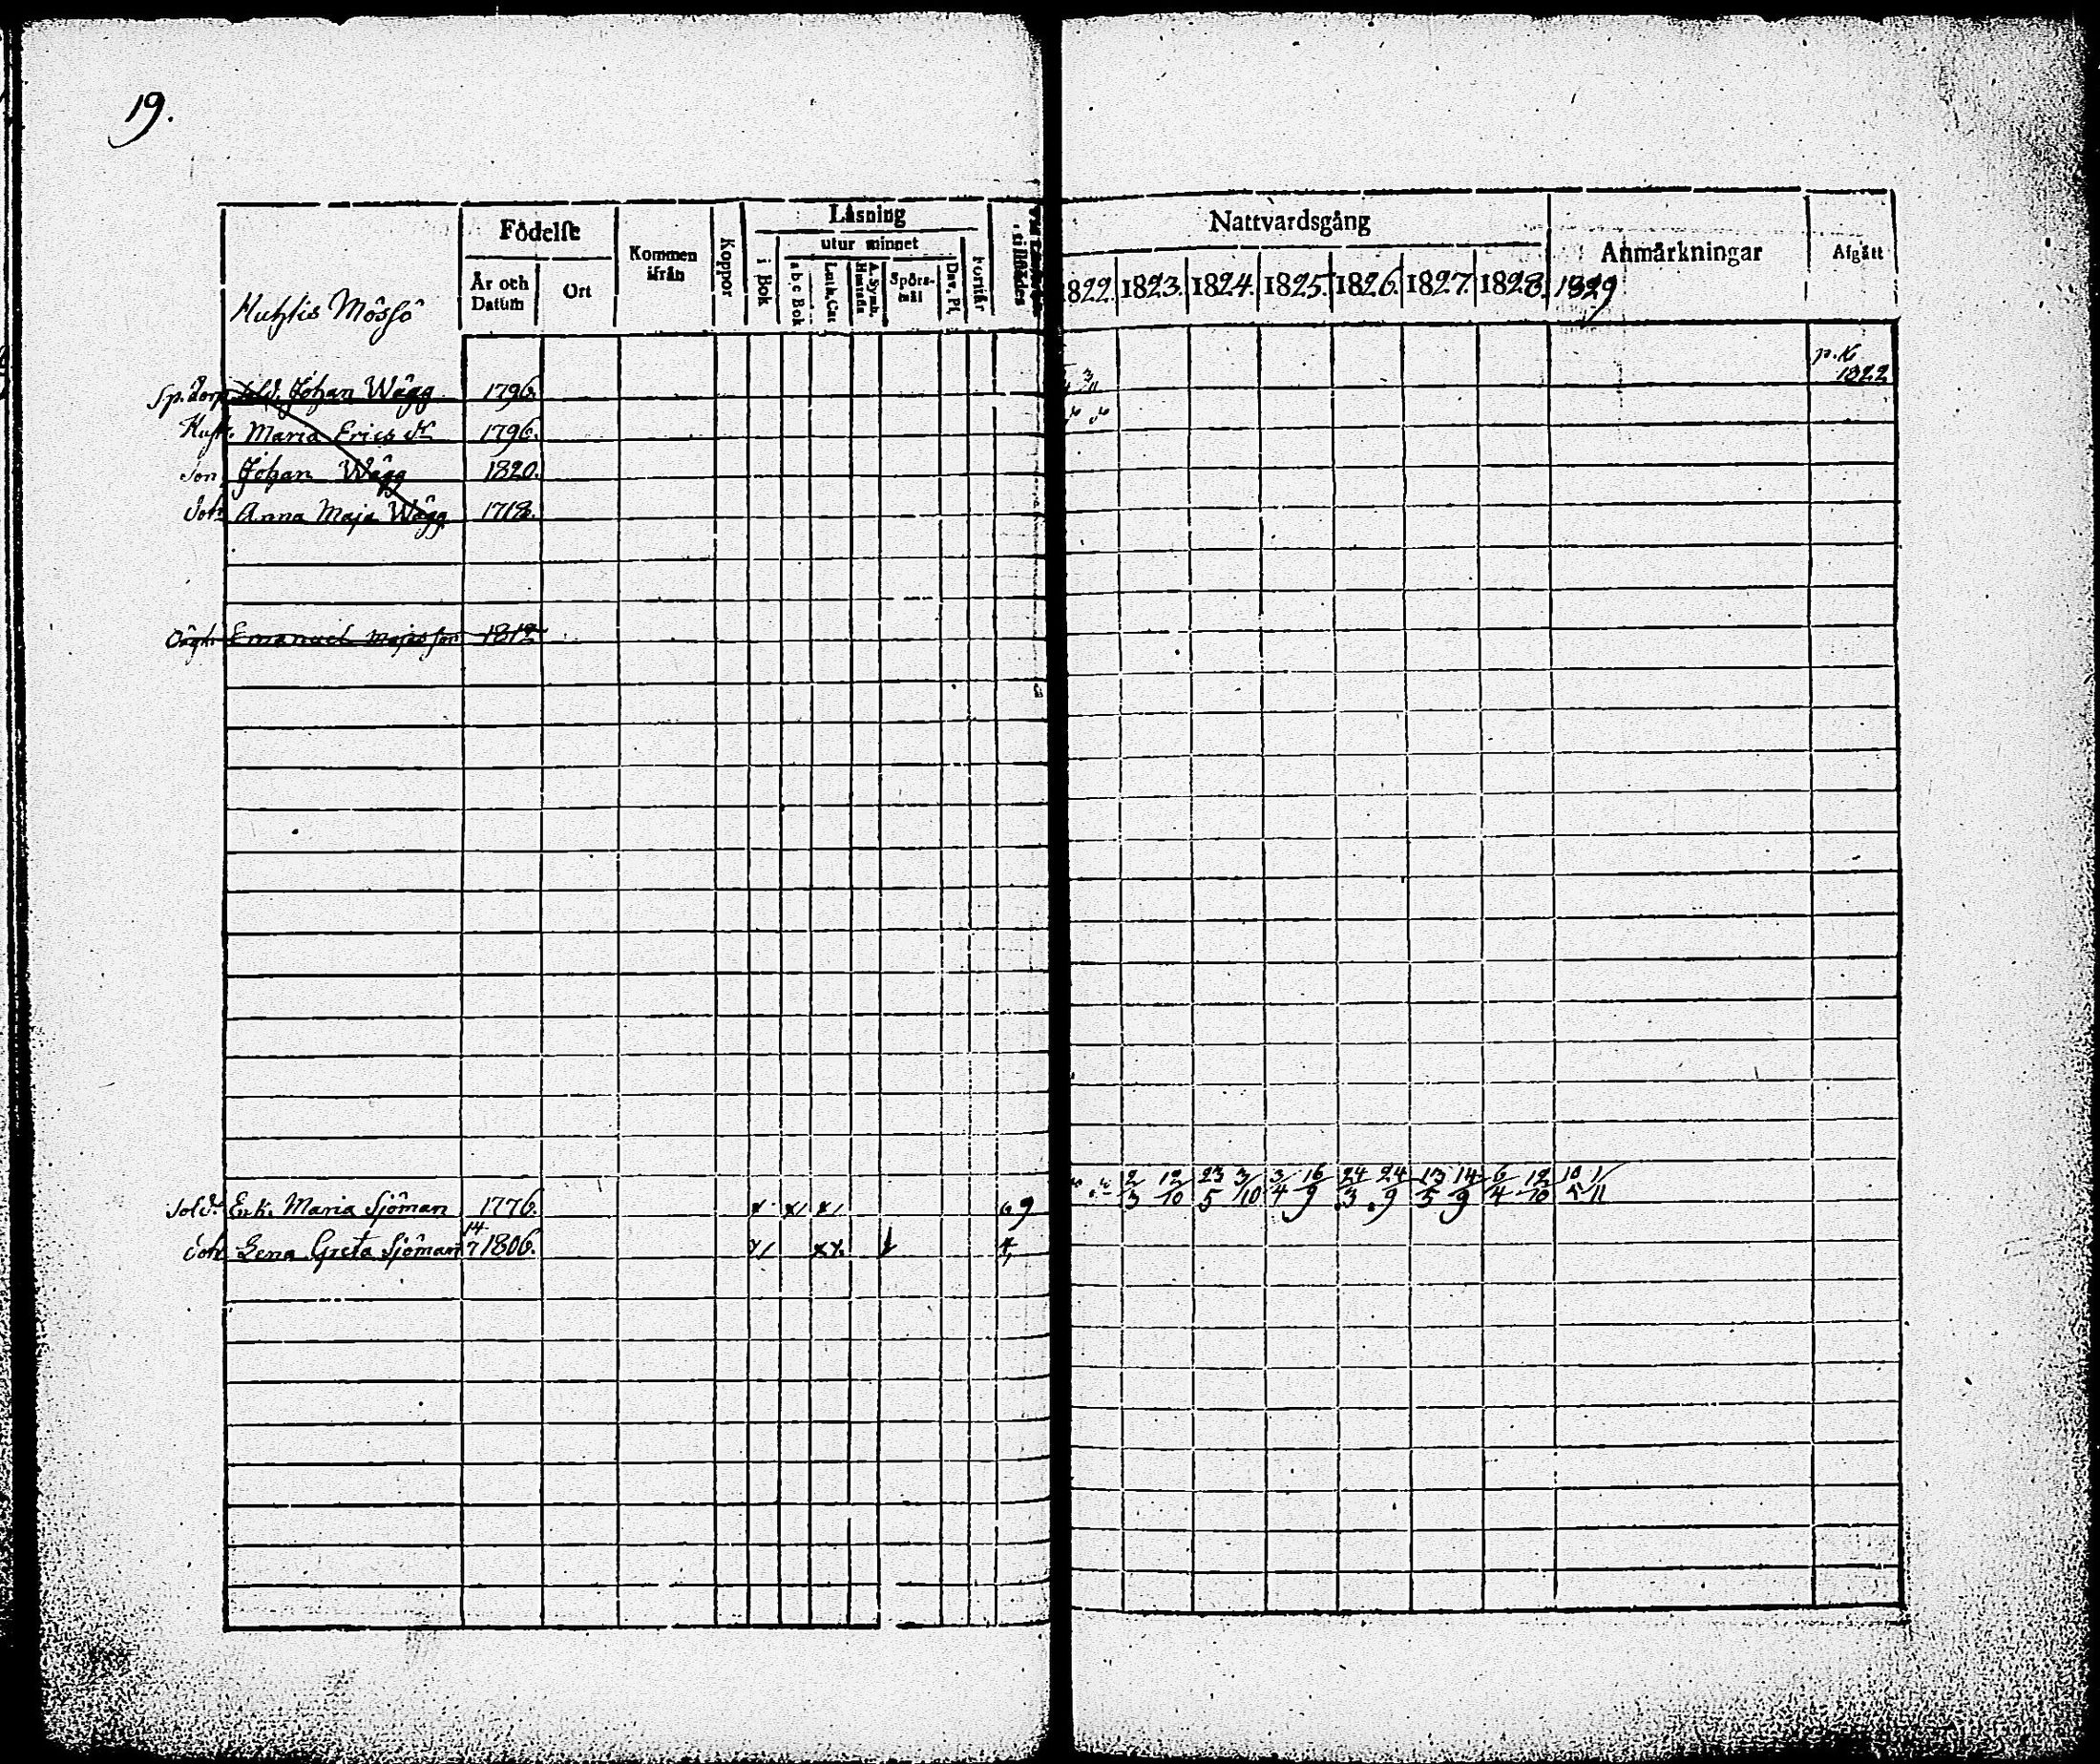 19.
Födelse
Kommen ifrån
Koppor
Läsning
utur minnet
År och Datum
Ort
i Bok
a b c Bok
Luth. Cat
A. Symb. Hustafla
Spörs-mål
Dav. Ps.
Förstår
Nattvardsgång
Anmärkningar
Afgått
1822. 1823. 1824. 1825. 1826. 1827. 1828. 1829
Mössö
p. 16 1822
Sold. Johan Wägg 1796.
Hust. Maria Erics dr 1796.
Son Johan Wägg 1820.
dotr Anna Maja Wägg 1718.
Emanuel Majasson 1812
Sold. Enk. Maria Sjöman 1776. x x/ x/ 9 2/3 12/10 23/5 3/10 3/4 16/9 24/3 24/9 13/5 14/9 6/4 12/10 10/5 1/11
dotr Lena Greta Sjöman 14/7 1806.